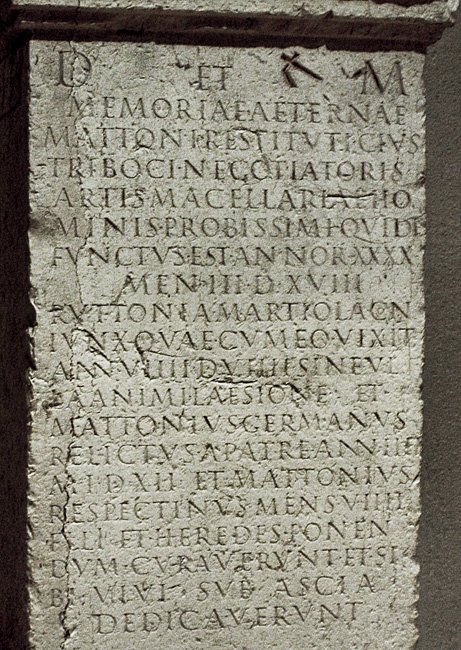 D ET M
MEMORIAE AETERNAE
MATTONI RESTITVTI CIVS
TRIBOCI NEGOTIATORIS
ARTIS MACELLARIAE HO
MINIS PROBISSIMI QVI DE
FVNCTVS EST ANNOR XXXX
MEN III D XVIII
RVTTONIA MARTIOLA CN
IVNX QVAE CVM EO VIXIT
ANN VIIII D V SINE VL
LA ANIMI LAESIONE ET
MATTONIVS GERMANVS
RELICTVS A PATRE ANN III
M I D XII ET MATTONIVS
RESPECTINVS MENS VIIII
FILI ET HEREDES PONEN
DVM CVRAVERVNT ET SI
BI VIVI SVB ASCIA
DEDICAVERVNT